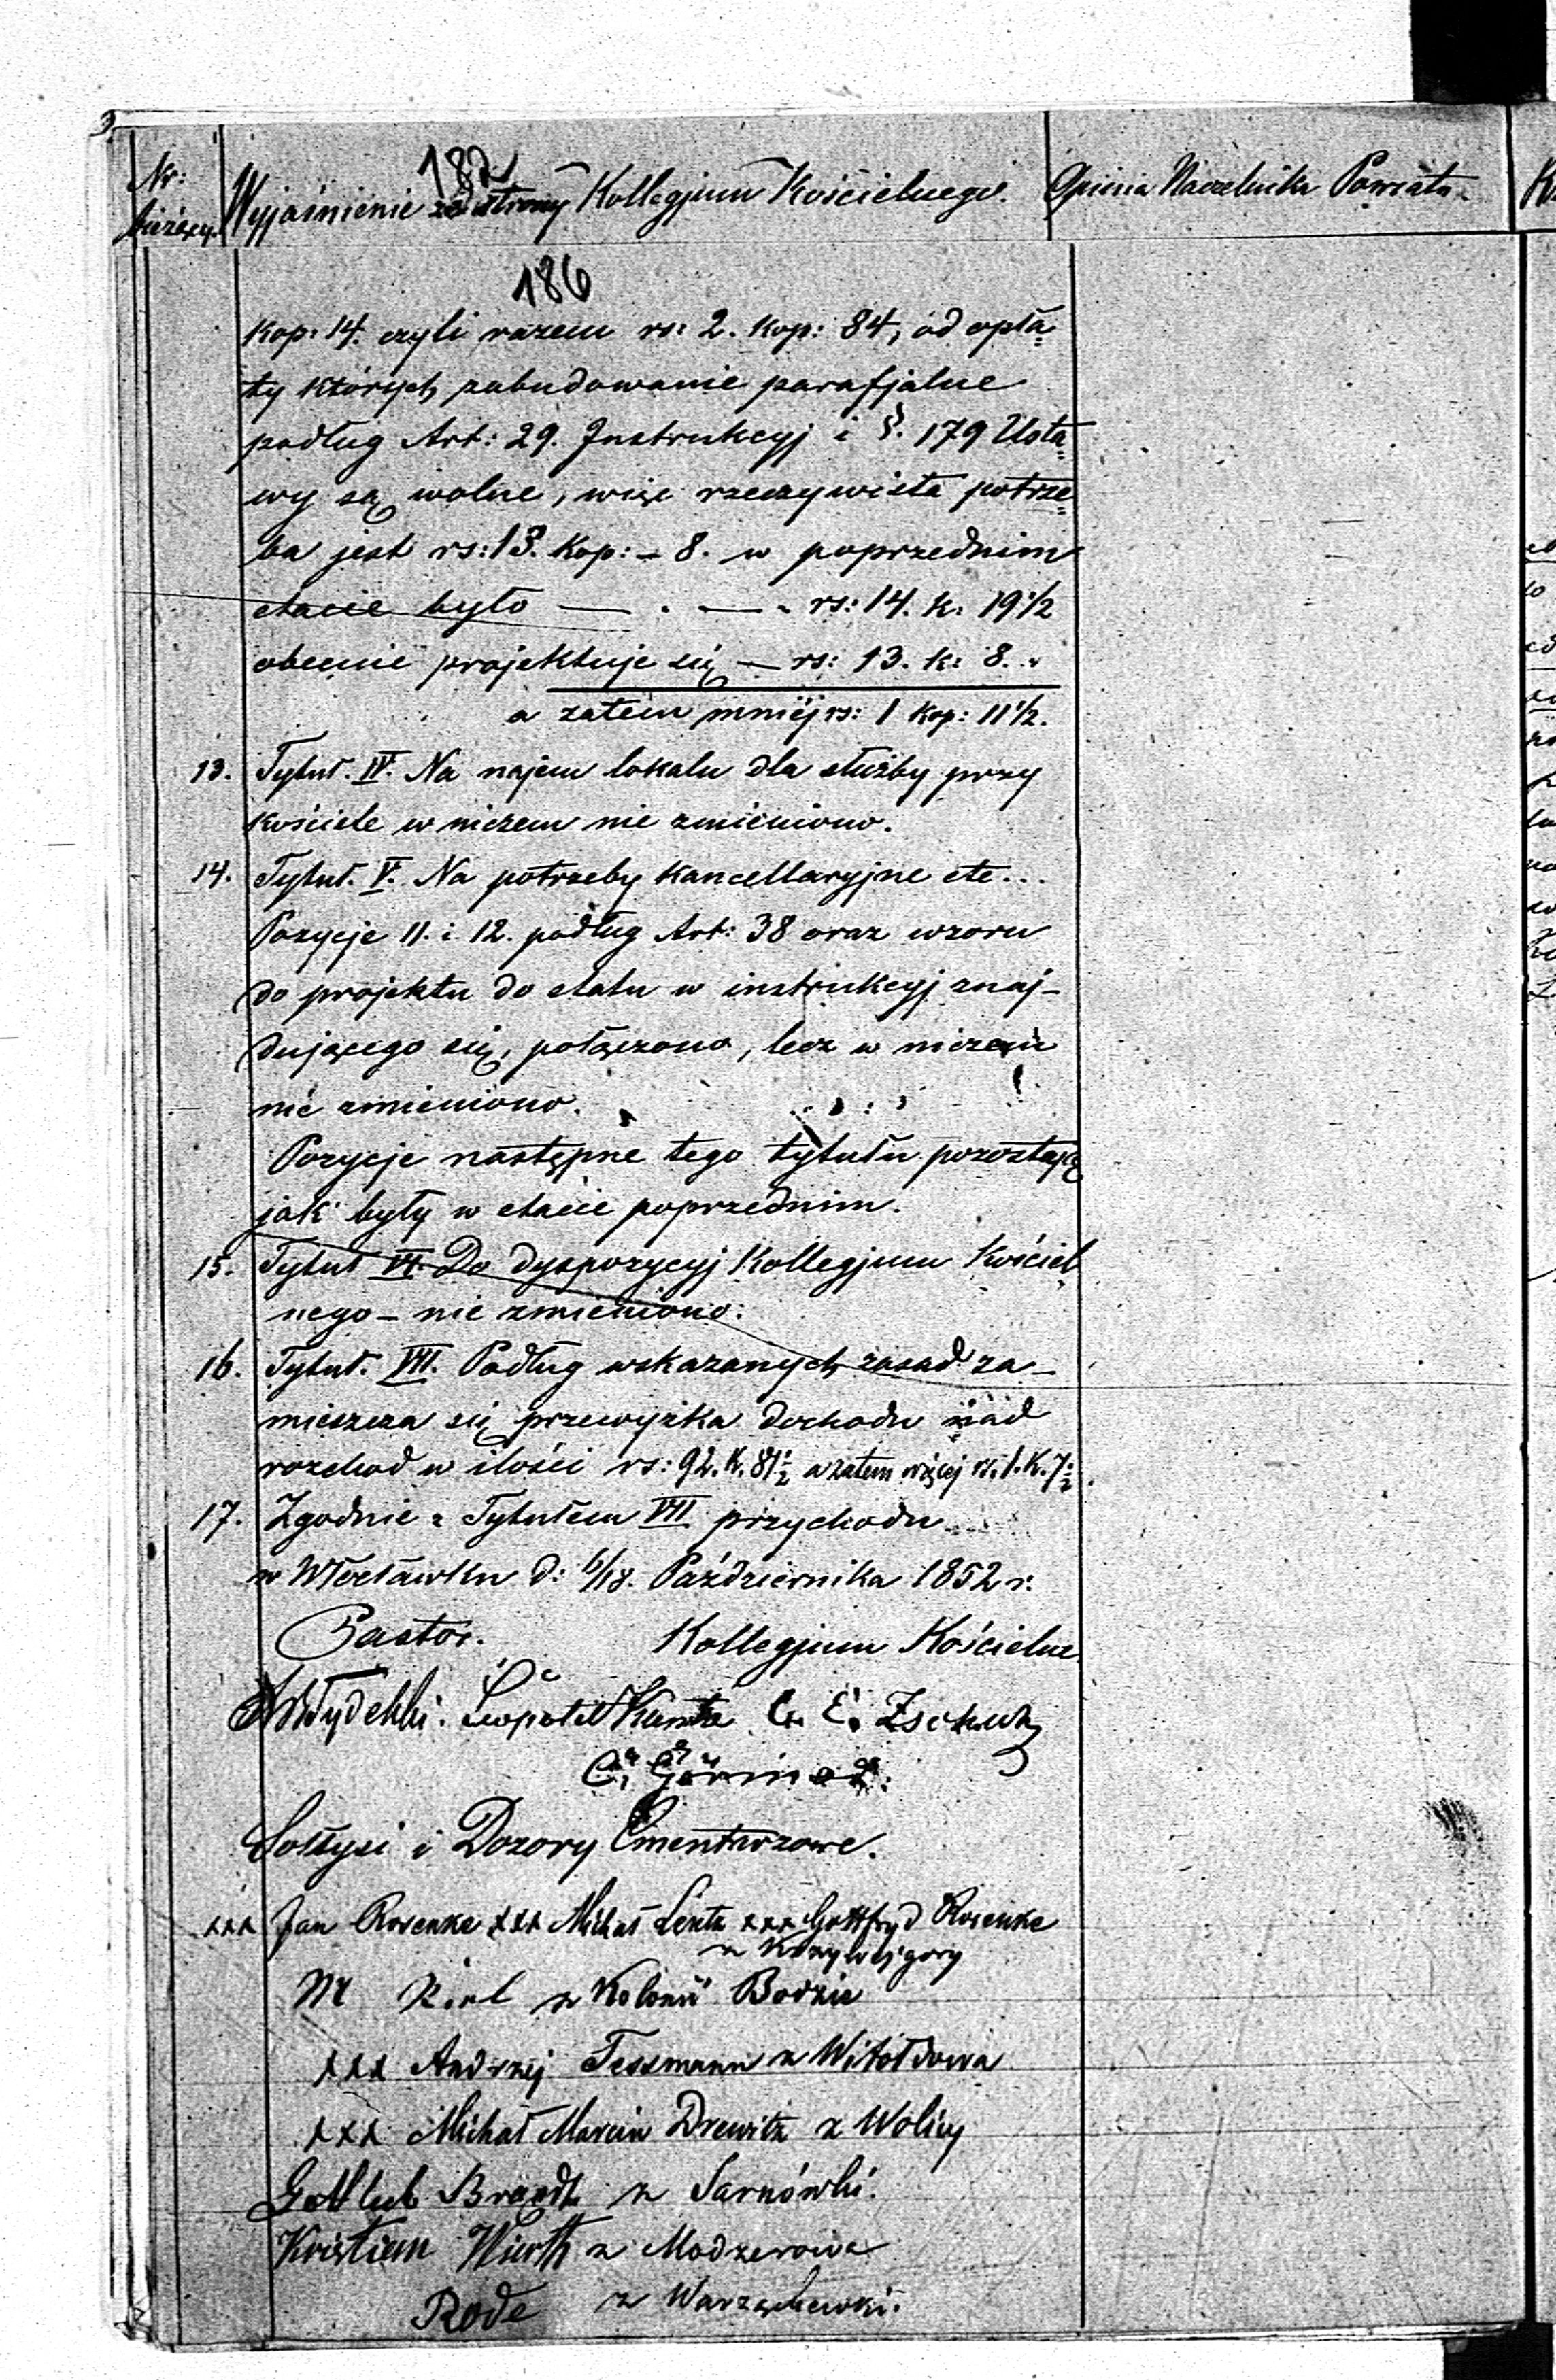 182
Nr: bieżący. Wyjaśnienie ze strony Kollegjum Kościelnego. Opinia Naczelnika Powiatu
186
kop: 14. czyli razem rs: 2. kop: 84, od opła=
ty których zabudowanie parafjalne
podług Art: 29. Instrukcyj i §. 179 Usta=
wy są wolne, więc rzeczywista potrze=
ba jest rs: 13. kop: – 8. w poprzednim
etacie było — . — . rs: 14. k: 19 1/2
obecnie projektuje się — rs: 13. k: 8. "
a zatem mniéj rs: 1 kop: 11 1/2.
13. Tytuł. IV. Na najem lokalu dla służby przy
kościele w niczem nie zmieniono.
14. Tytuł. V. Na potrzeby kancellaryjne etc...
Pozycje 11. i 12. podług Art: 38 oraz wzoru
do projektu do etatu w instrukcyj znaj-
dującego się, połączono, lecz w niczem
nie zmieniono.
Pozycje następne tego tytułu pozostają
jak były w etacie poprzednim.
15. Tytuł VI. Do dyspozycyj Kollegjum Kościel
nego – nie zmieniono.
16. Tytuł. VIII. Podług wskazanych zasad za-
mieszcza się przewyżka dochodu nad
rozchod w ilości rs: 92. k. 81 1/2 a zatem więcej rs. 1. k. 7 1/2.
17. Zgodnie z Tytułem VII przychodu
w Włocławku d: 6/18. Października 1852 r.
Pastor. Kollegjum Kościelne
Leopold C. E.
C.
Sołtysi i Dozory Cmentarzowe.
xxx Jan Rosenke xxx Michał Lentz xxx Gottfryd Rosenke
z Krzywejgory
M z Kolonii Bodzia
xxx Andrzej Tessmann z Witołdowa
xxx Michał Marcin Drewitz z Wolicy
Gottlieb Brandt z Sarnówki.
Kristian Wirth z Modzerowa
Rode z